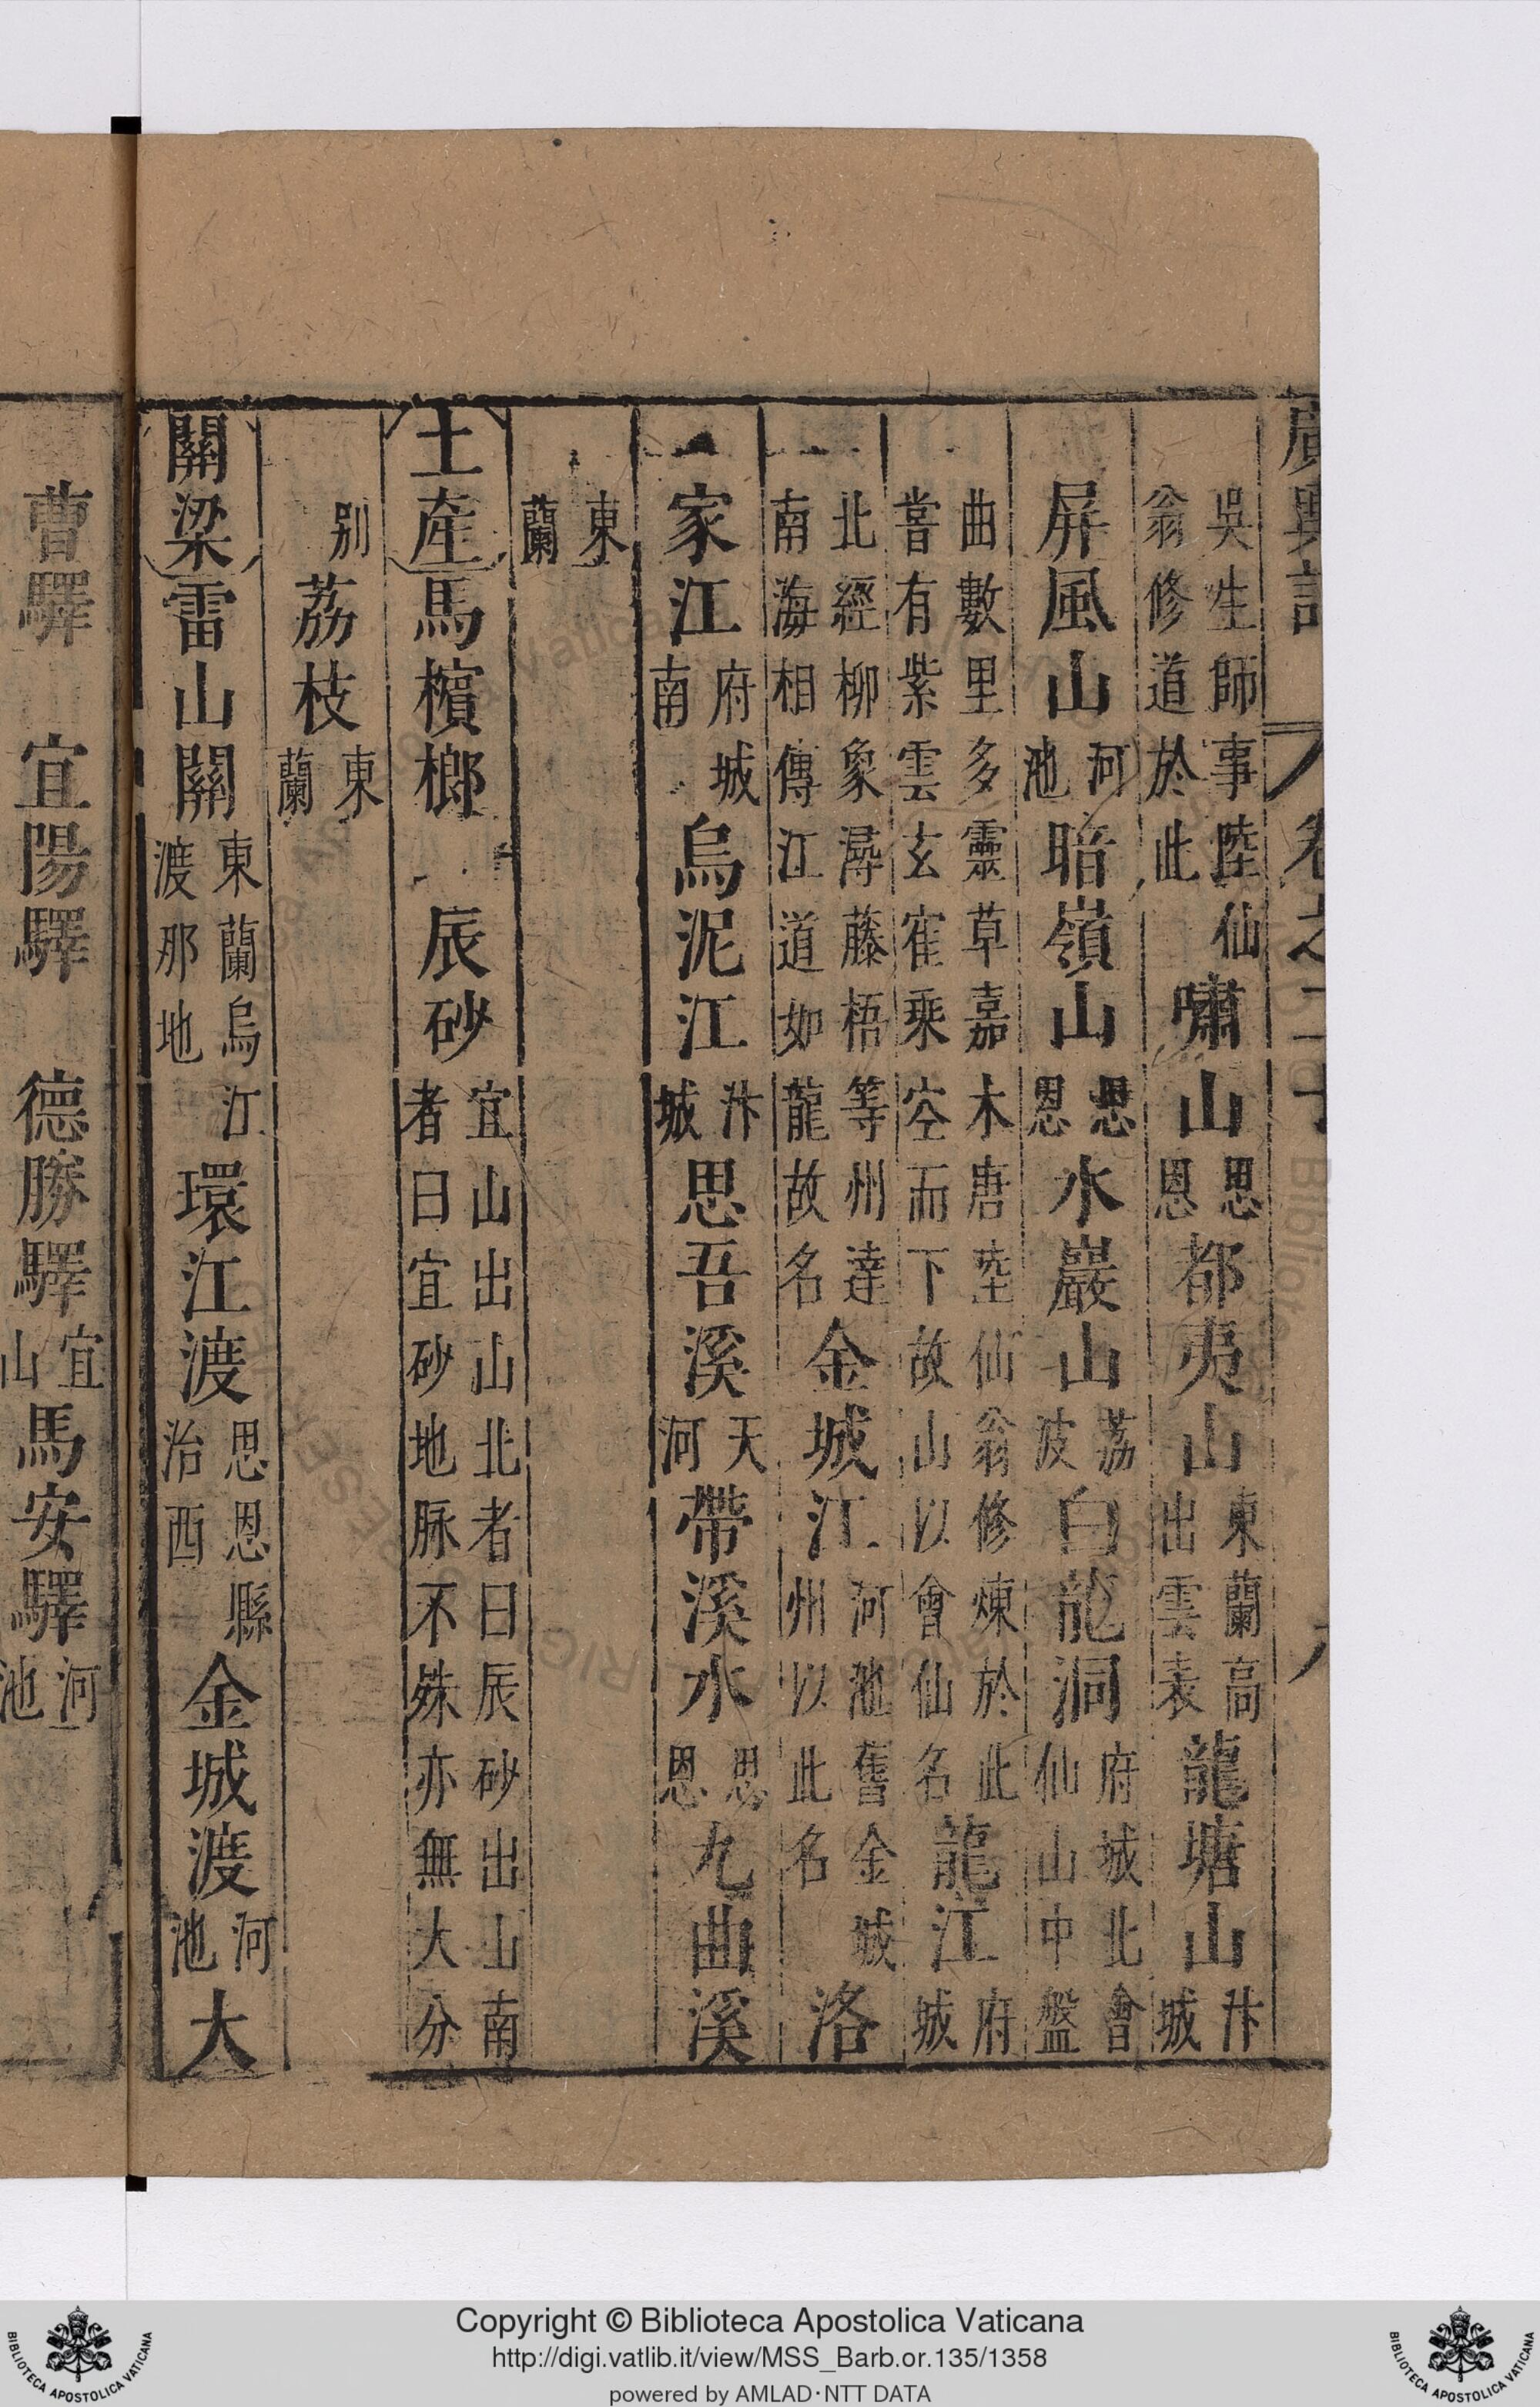 廣輿記 卷之二十
吳生師事陸仙翁修道於此 嘯山思恩 都夷山東蘭高出雲表 龍塘山忻城
屏風山河池 暗嶺山思恩 水巖山荔波 白龍洞府城北會仙山中盤
曲數里多靈草嘉木唐陸仙翁修煉於此嘗有紫雲玄寉乘空而下故山以會仙名 龍江府城
北經柳象潯藤梧等州達南海相傳江道如龍故名 金城江河池舊金城州以此名 洛
家江府城南 烏泥江忻城 思吾溪天河 帶溪水思恩 九曲溪
東蘭
土產 馬檳榔 辰砂宜山出山北者曰辰砂出山南者曰宜砂地脉不殊亦無大分
別 荔枝東蘭
關梁 雷山關東蘭烏江渡那地 環江渡思恩縣治西 金城渡河池 大
曹驛 宜陽驛 德勝驛宜山 馬安驛河池
Copyright © Biblioteca Apostolica Vaticana
http://digi.vatlib.it/view/MSS_Barb.or.135/1358
powered by AMLAD·NTT DATA
BIBLIOTECA APOSTOLICA VATICANA
BIBLIOTECA APOSTOLICA VATICANA